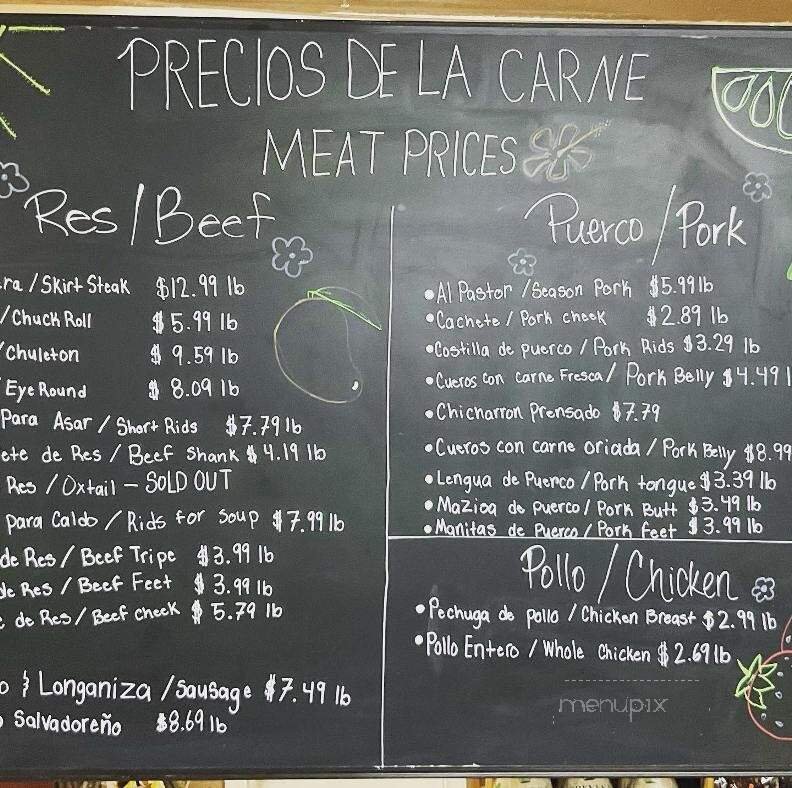 PRECIOS DE LA CARNE
MEAT PRICES
Res/Beef
ra / Skirt Steak $12.99 lb
/Chuck Roll $5.99 lb
/Chuleton $9.59 lb
Eye Round $8.09 lb
Para Asar / Short Rids $7.79 lb
ete de Res / Beef Shank $4.19 lb
Res /Oxtail – SOLD OUT
para Caldo / Rids for Soup $7.99 lb
de Res / Beef Tripe $3.99 lb
de Res / Beef Feet $3.99 lb
de Res / Beef cheek $5.79 lb
o & Longaniza /Sausage $7.49 lb
Salvadoreño $8.69 lb
Puerco / Pork
•Al Pastor /Season Pork $5.99 lb
•Cachete / Pork cheek $2.89 lb
•Costilla de puerco / Pork Rids $3.29 lb
•Cueros con carne Fresca/ Pork Belly $4.49 l
•Chicharron Prensado $7.79
•Cueros con carne oriada / Pork Belly $8.99
•Lengua de Puerco / Pork tongue $3.39 lb
•Mazioa de puerco / Pork Butt $3.49 lb
•Manitas de Puerco / Pork feet $3.99 lb
Pollo / Chicken
•Pechuga de pollo / Chicken Breast $2.99 lb
•Pollo Entero / Whole Chicken $2.69 lb
menupix